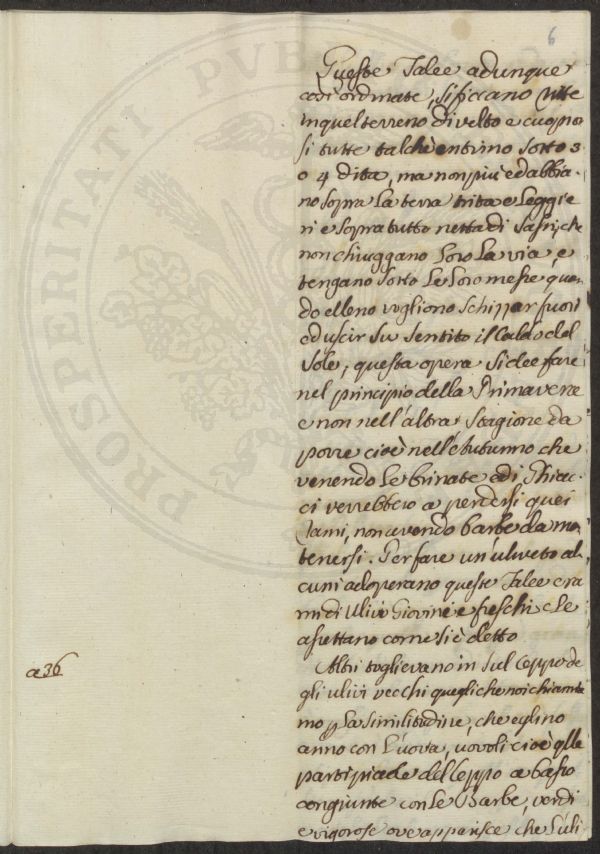 6
Queste Talee adunque
così ordinate, si ficcano tutte
in quel terreno divelto e cuopron
si tutte talchè entrino sotto 3
o 4 dita, ma non più ed abbia-
no sopra la terra trita e leggie
ri e sopra tutto netta di sassi, che
non chiuggano loro la via, e
tengano sotto le loro messe quan-
do elleno vogliono schizzar fuori
ed uscir su sentito il Caldo del
Sole, questa opera si dee fare
nel principio della Primavera
e non nell'altra Stagione da
porre cioè nell'Autunno che
venendo le brinate ed i Ghiac-
ci verrebbero a perdersi quei
rami, non avendo barbe da man
tenersi. Per fare un'uliveto al-
cuni adoperano queste Talee e ra
mi di Ulivi Giovini e freschi che
assettano come si è detto
a 36
Altri toglievano in sul Ceppo de
gli ulivi vecchi quegli che noi chiamia
mo p la similitudine, che eglino
anno con l'uova, uovoli cioè qlle
parti picade del Ceppo a basso
congiunte con le Barbe, verdi
e vigorose ove apparisce che l'uli
PROSPERITATI PVBLICAE